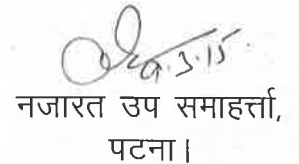 9.3.15
नजारत उप समाहर्त्ता,
पटना।